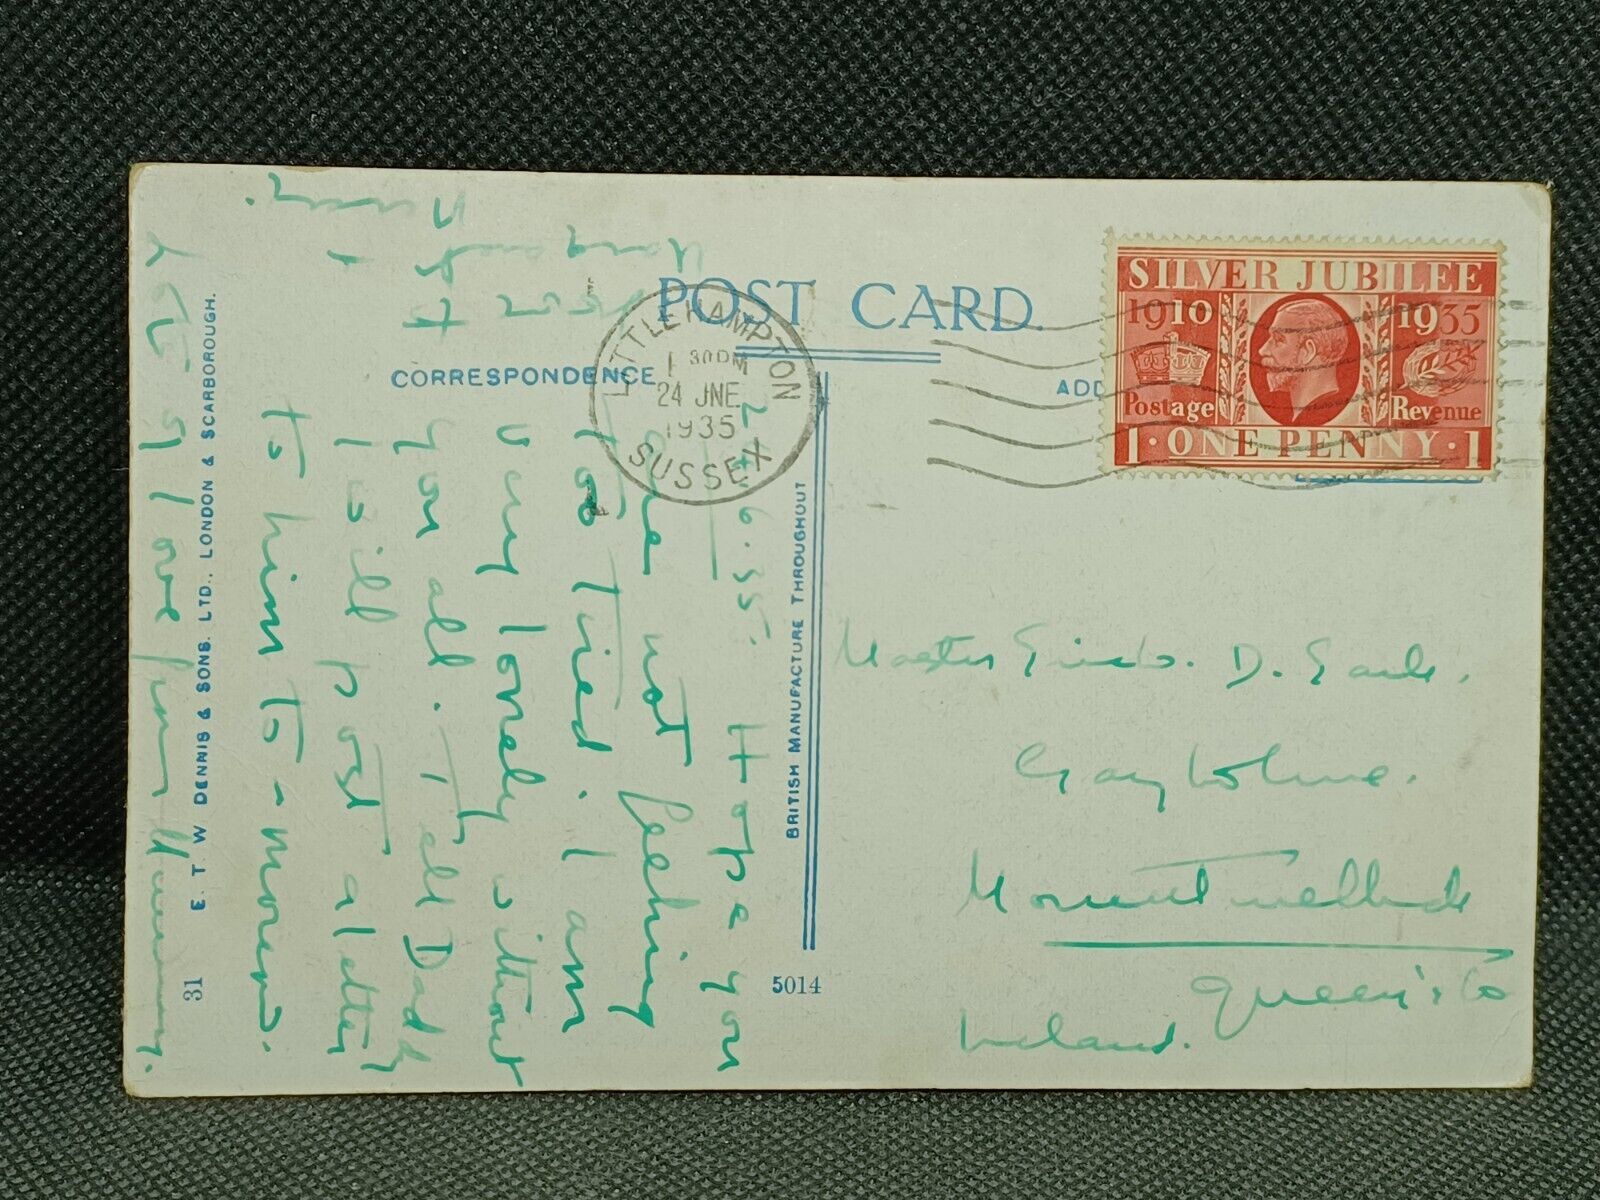 POST CARD.
CORRESPONDENCE
ADD
LITTLEHAMPTON
1 30PM
24 JNE
1935
SUSSEX
SILVER JUBILEE
1910 1935
Postage Revenue
1 · ONE PENNY · 1
BRITISH MANUFACTURE THROUGHOUT
5014
31 E. T. W DENNIS & SONS. LTD., LONDON & SCARBOROUGH.
24.6.35. Hope you
are not feeling
too tired. I am
very lonely without
you all. Tell Daddy
I will post a letter
to him to-morrow.
Lots of love from Mummy.
Master D.
Mountmellick
Queen's Co
Ireland.